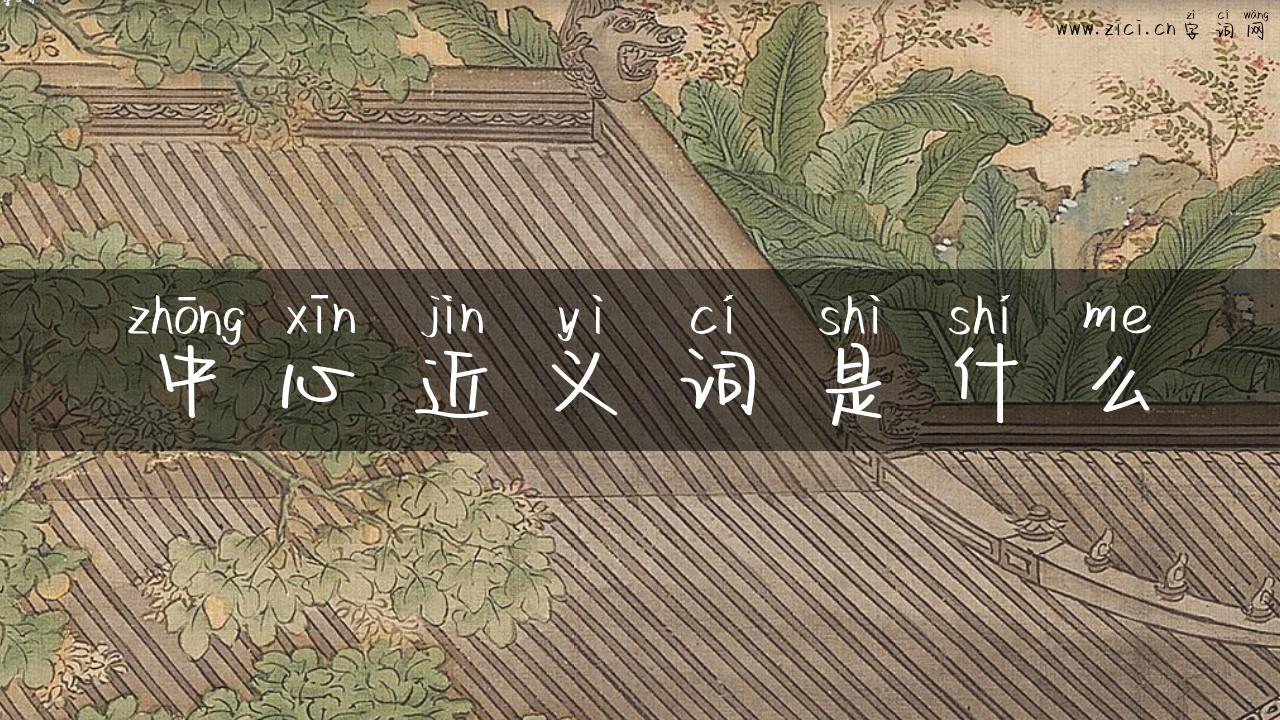 zì cí wǎng
www.zici.cn 字词网
zhōng xīn jìn yì cí shì shí me
中心近义词是什么